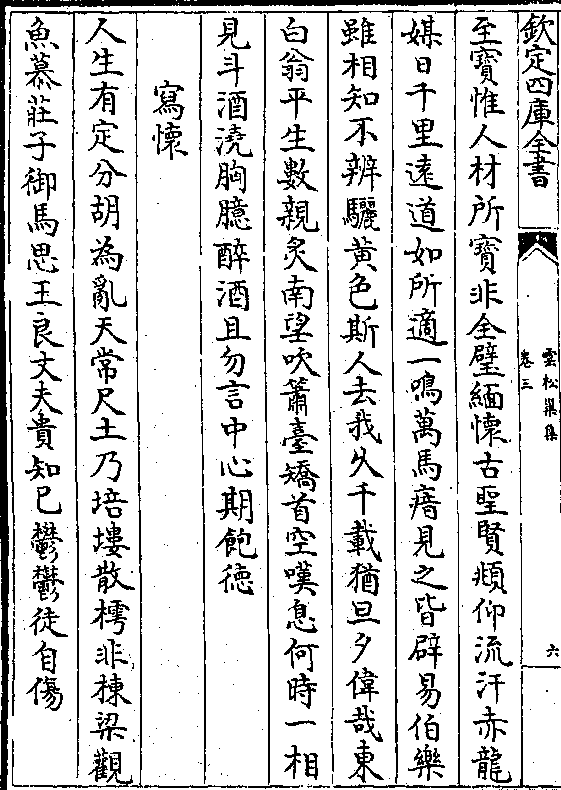 欽定四庫全書
雲松巢集
卷三
六
至寶惟人材所寶非全璧緬懷古聖賢頫仰流汗赤龍
媒日千里遠道如所適一鳴萬馬瘖見之皆辟易伯樂
雖相知不辨驪黄色斯人去我乆千載猶旦夕偉哉東
白翁平生數親炙南望吹簫臺矯首空嘆息何時一相
見斗酒澆胸臆醉酒且勿言中心期飽徳
寫懷
人生有定分胡為亂天常尺土乃培塿散樗非棟梁觀
魚慕莊子御馬思王良丈夫貴知己鬱鬱徒自傷